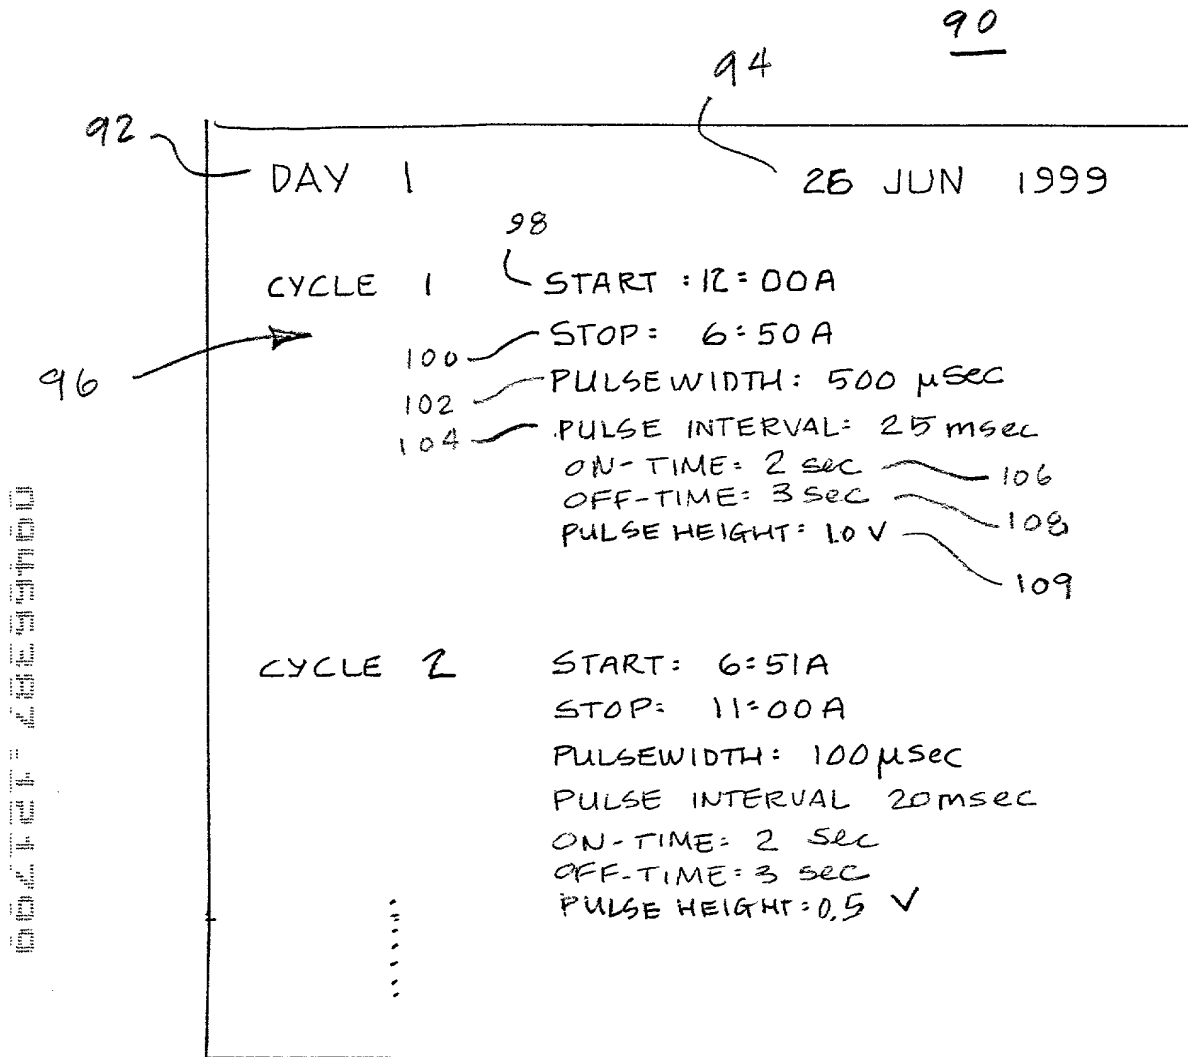 90
94
92
DAY 1 26 JUN 1999
98
CYCLE 1 START : 12:00A
100 STOP: 6:50A
96
102 PULSEWIDTH: 500 µsec
104 PULSE INTERVAL: 25 msec
ON-TIME: 2 sec 106
OFF-TIME: 3 sec 108
PULSE HEIGHT: 1.0 V
109
CYCLE 2 START: 6:51A
STOP: 11:00A
PULSEWIDTH: 100 µsec
PULSE INTERVAL 20 msec
ON-TIME: 2 sec
OFF-TIME: 3 sec
PULSE HEIGHT: 0.5 V